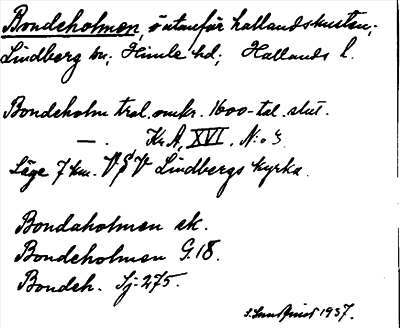 Bondeholmen, ö utanför hallandskusten;
Lindberg sn; Himle hd; Hallands l.
Bondeholm trol. omkr. 1600-tal. slut.
— . Kr A, XVI, N:o 3.
Läge 7 km. VSV Lindbergs kyrka.
Bondaholmen ek.
Bondeholmen G.18.
Bondeh. Sj-275.
1937.